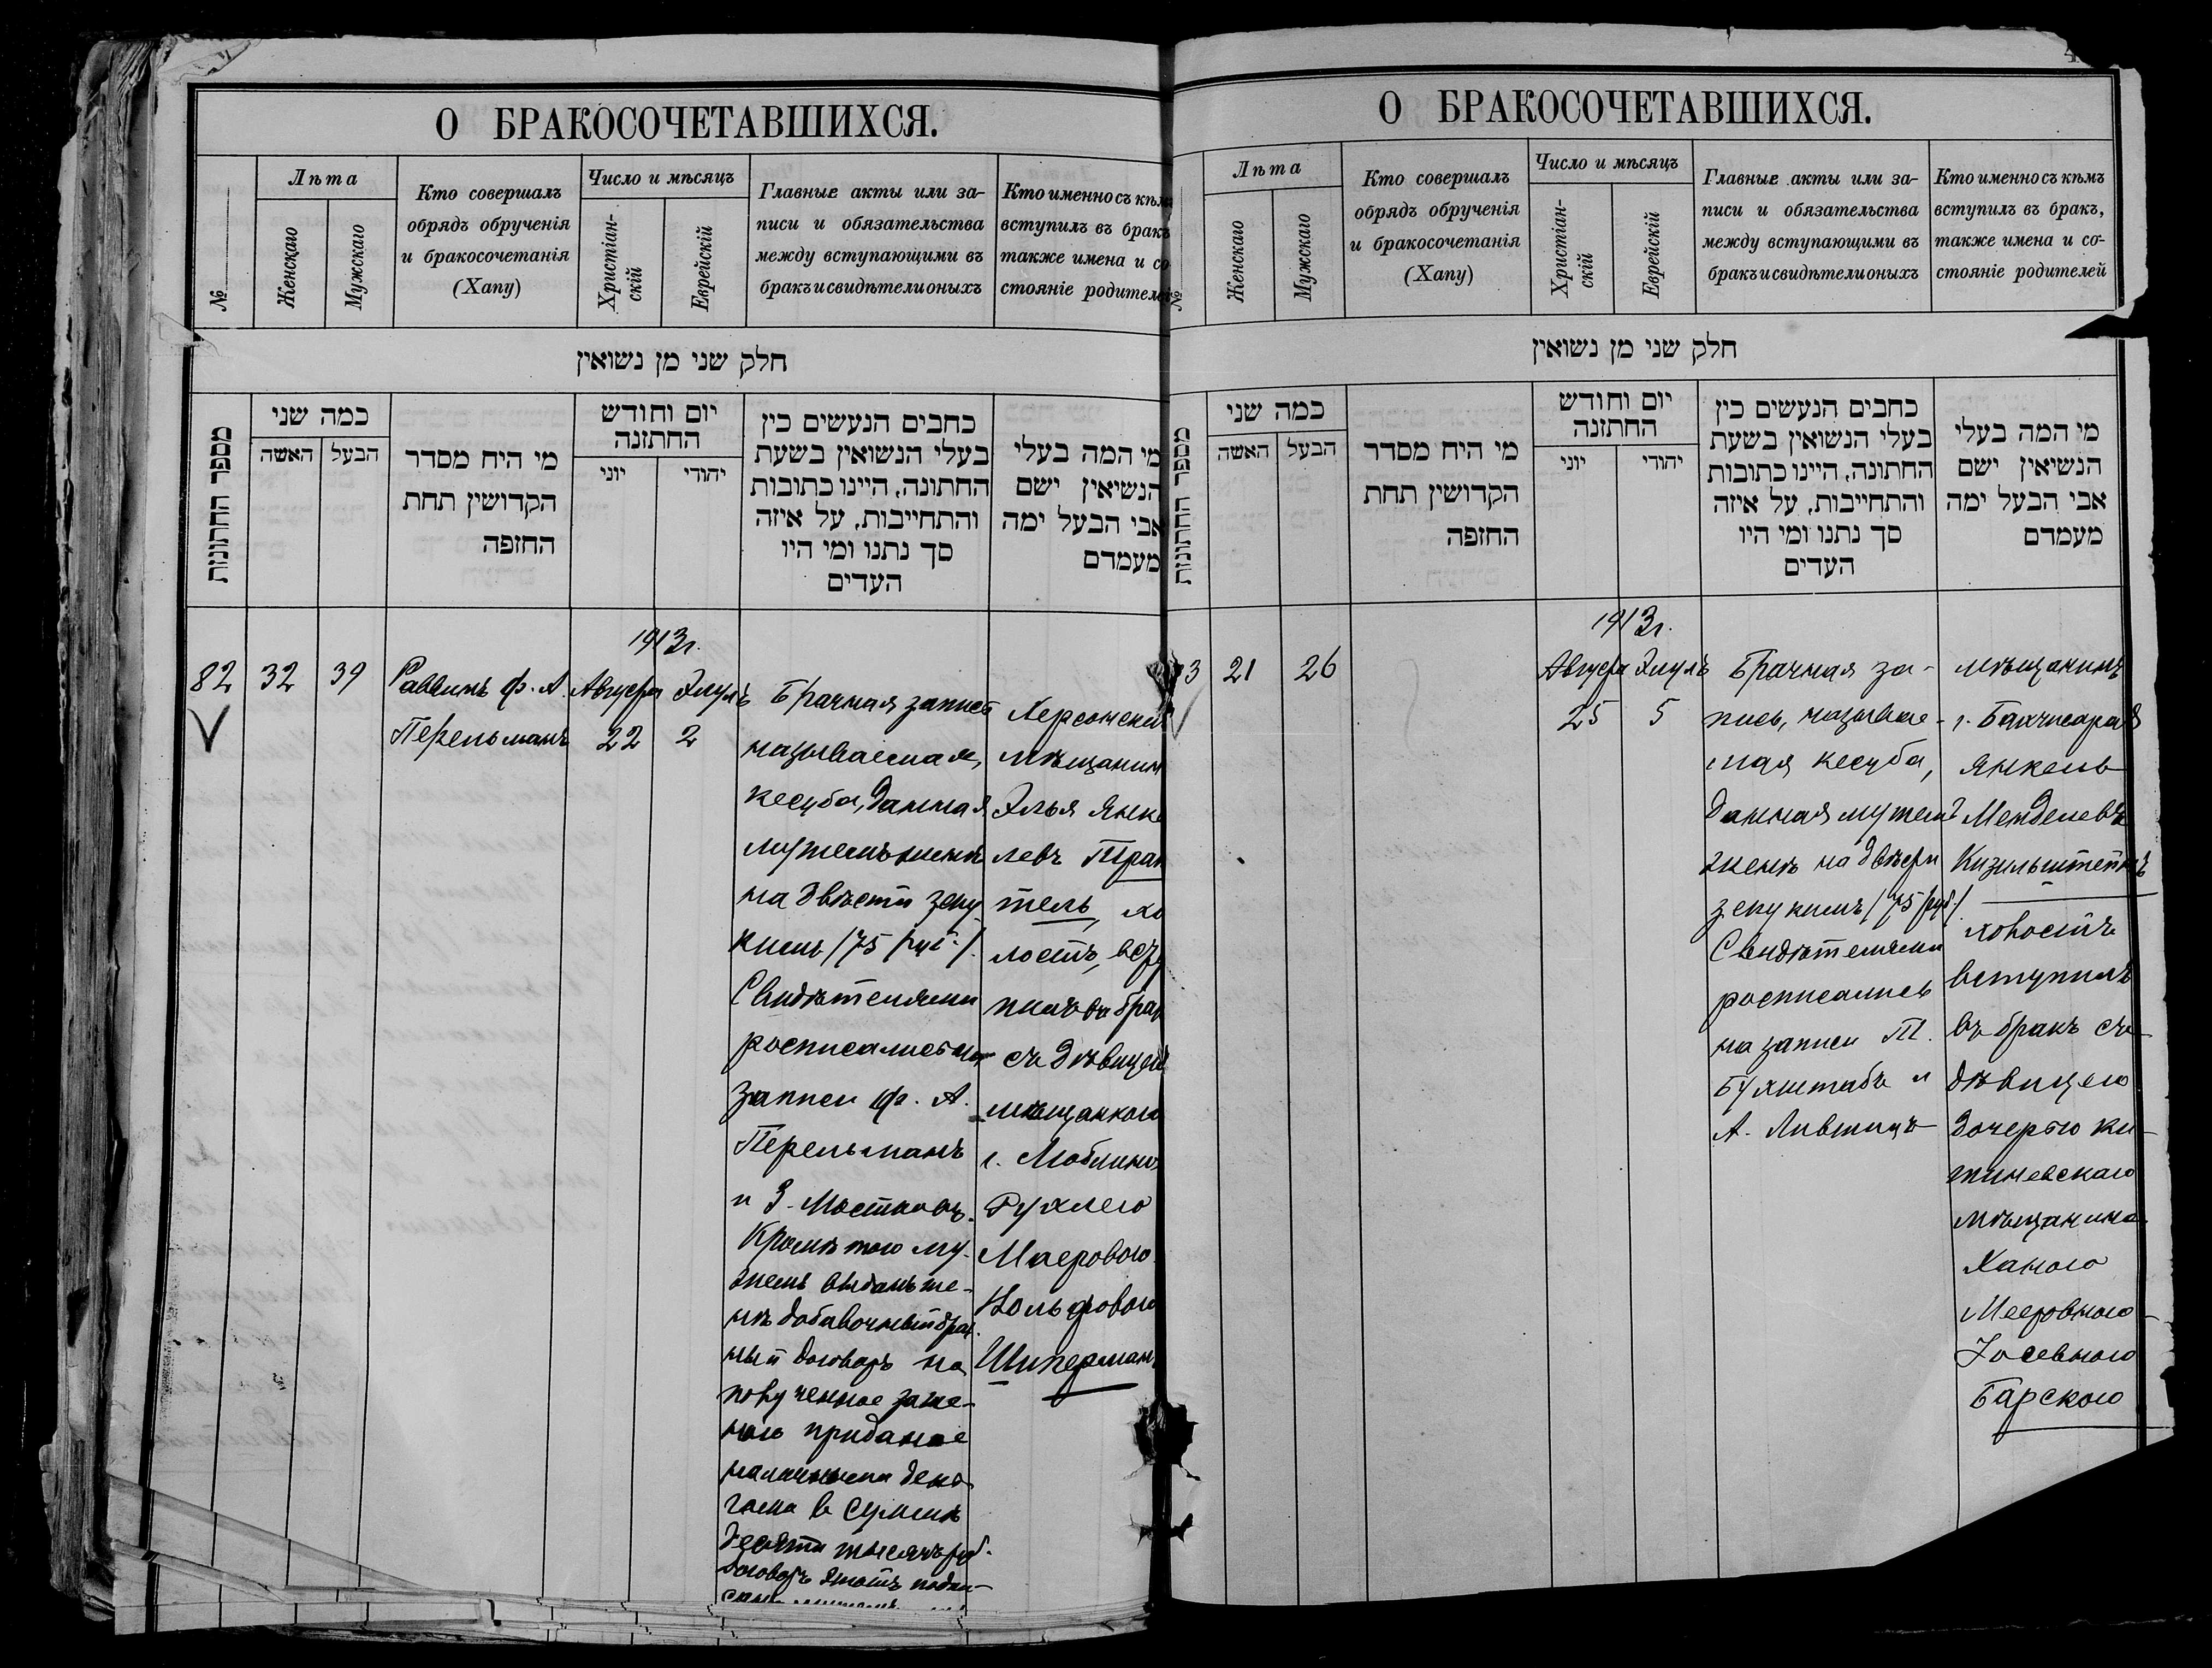 О БРАКОСОЧЕТАВШИХСЯ.
№
Лѣта
Женскаго
Мужскаго
Кто совершалъ
обрядъ обрученія
и бракосочетанія
(Хапу)
Число и мѣсяцъ
Христіан-
скій
Еврейскій
Главные акты или за-
писи и обязательства
между вступающими въ
бракъ и свидѣтели оныхъ
Кто именно съ кѣмъ
вступилъ въ бракъ
также имена и со
стояніе родителей
חלק שני מן נשואין
מספר החתונות
כמה שני
האשה
הבעל
מי היח מסדר
הקדושין תחת
החזפה
יום וחודש
החתזנה
יוני
יהודי
כחבים הנעשים כין
בעלי הנשואין בשעת
החתונה, היינו כתובות
והתחייבות, על איזה
סך נתנו ומי היו
העדים
מי המה בעלי
הנשיאין ישם
אבי הבעל ימה
מעמדם
1913г.
82
32
39
Раввинъ Ф. А.
Перельманъ
Августа
22
Элулъ
2
Брачная запись
называемая,
кесуба, данная
мужемъ женѣ
на двѣсти зеку
кимъ /75 руб./
Свидѣтелями
росписались на
записи Ф. А.
Перельманъ
и З. Мостковъ.
Кромѣ того му-
жемъ выданъ же-
нѣ добавочный брач
ный договоръ на
полученное за же-
ною приданое
наличными день
гами в суммѣ
десяти тысячъ руб.
Договоръ этотъ подпи-
Херсонскій
мѣщанин
Элья Янке
левъ Тран
тель, хо
лостъ, всту
пилъ въ брак
съ дѣвицей
мѣщанкою
г. Люблина
Рухлею
Маеровою
Вольфовою
Шиперман
О БРАКОСОЧЕТАВШИХСЯ.
№
Лѣта
Женскаго
Мужскаго
Кто совершалъ
обрядъ обрученія
и бракосочетанія
(Хапу)
Число и мѣсяцъ
Христіан-
скій
Еврейскій
Главные акты или за-
писи и обязательства
между вступающими въ
бракъ и свидѣтели оныхъ
Кто именно съ кѣмъ
вступилъ въ бракъ,
также имена и со-
стояніе родителей
חלק שני מן נשואין
מספר החתונות
כמה שני
האשה
הבעל
מי היח מסדר
הקדושין תחת
החזפה
יום וחודש
החתזנה
יוני
יהודי
כחבים הנעשים כין
בעלי הנשואין בשעת
החתונה, היינו כתובות
והתחייבות, על איזה
סך נתנו ומי היו
העדים
מי המה בעלי
הנשיאין ישם
אבי הבעל ימה
מעמדם
1913г.
3
21
26
Августа
25
Элулъ
5
Брачная за-
пись, называе-
мая кесуба,
данная мужемъ
женѣ на двѣсти
зекукимъ /75 руб./
Свидѣтелями
росписались
на записи Т.
Бухштабъ и
А. Лившицъ
мѣщанинъ
г. Бахчисарая
Янкель
Менделевъ
Кизильштейнъ
холостъ
вступилъ
въ бракъ съ
дѣвицею
дочерью ки-
шиневскаго
мѣщанина
Ханою
Мееровною-
Іосевною
Барскою